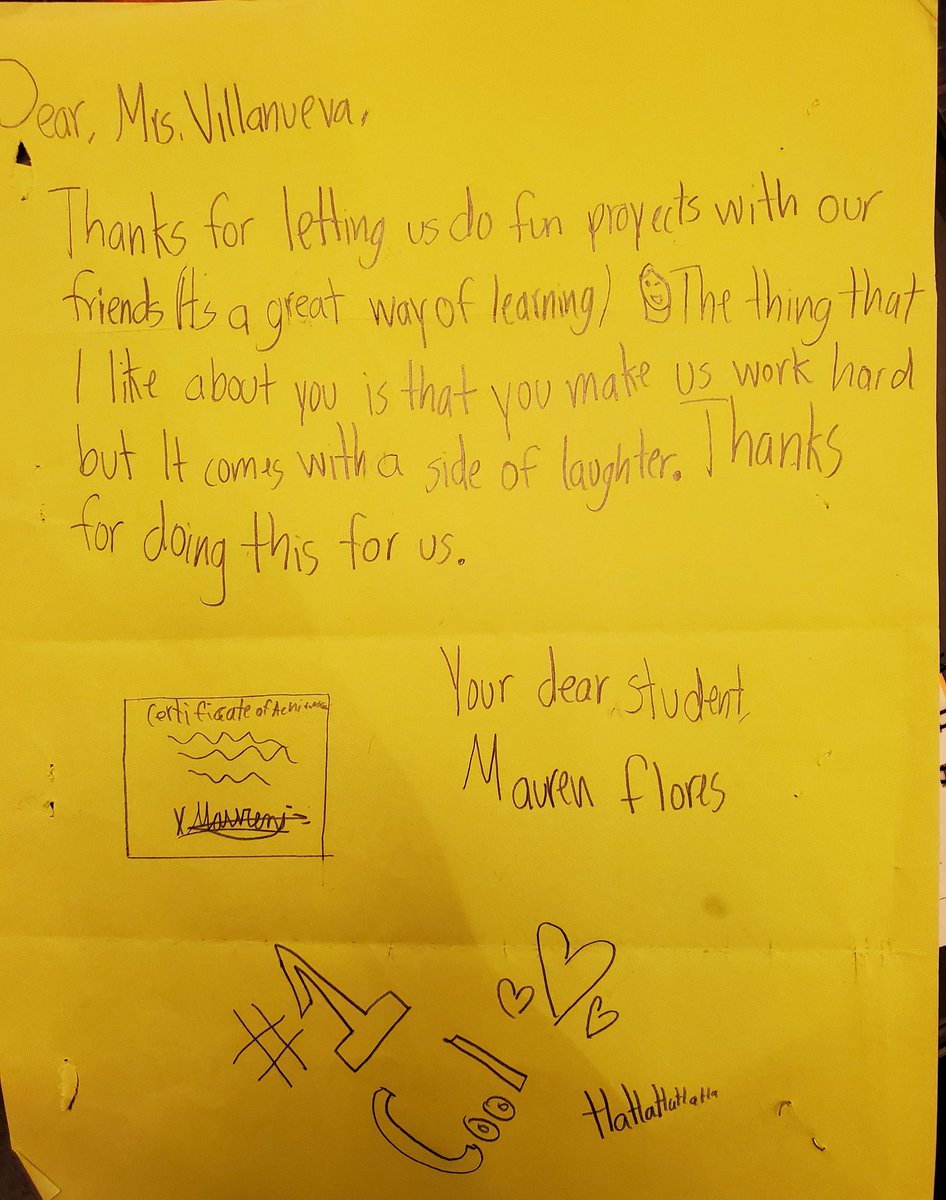 Dear, Mrs. Villanueva,
Thanks for letting us do fun proyects with our
friends (Its a great way of learning) The thing that
I like about you is that you make us work hard
but It comes with a side of laughter. Thanks
for doing this for us.
Your dear student,
Mauren flores
Certificate of
X Mauren
#1
Cool
HaHaHaHaHa